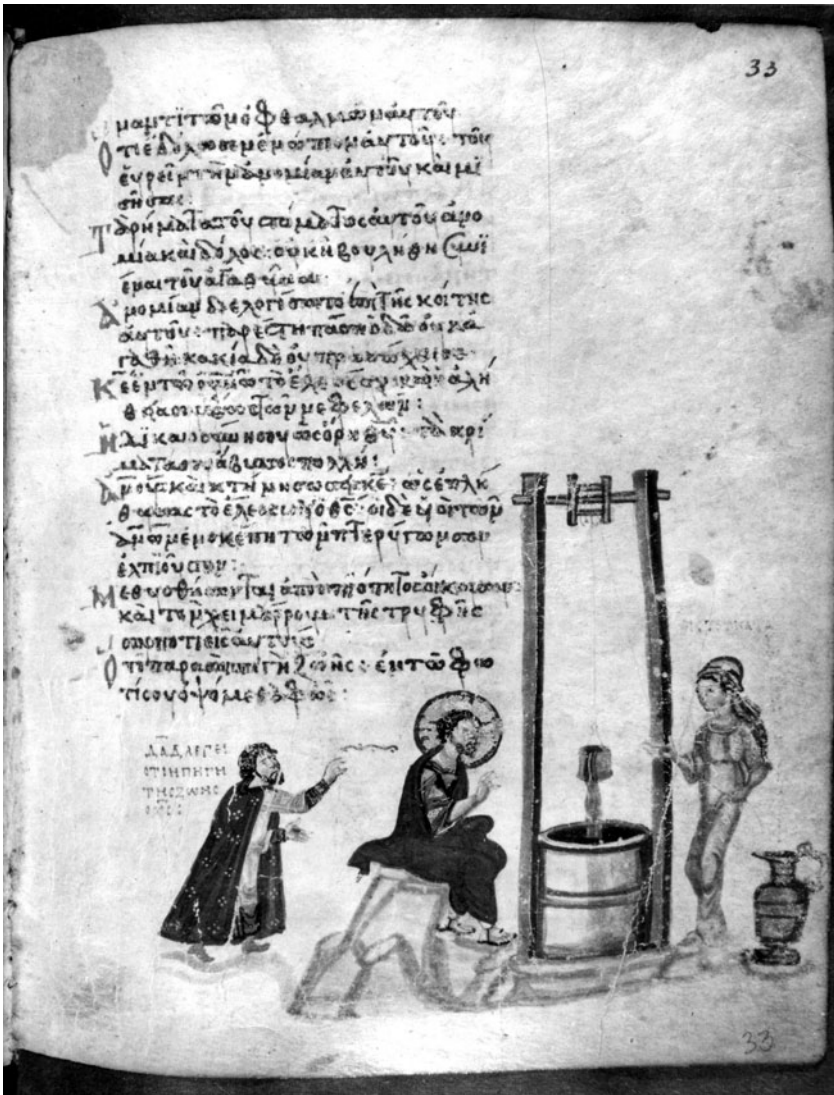 33
ναντι τῶν ὀφθαλμῶν αὐτοῦ
Ὅτι ἐδόλωσεν ἐνώπιον αὐτοῦ· τοῦ
εὑρεῖν τὴν ἀνομίαν αὐτοῦ καὶ μι
σῆσαι:
Τὰ ῥήματα τοῦ στόματος αὐτοῦ ἀνο
μία καὶ δόλος· οὐκ ἠβουλήθη συνϊ
έναι τοῦ ἀγαθῦναι
Ἀνομίαν διελογίσατο ἐπὶ τῆς κοίτης
αὐτοῦ· παρέστη πάσῃ ὁδῷ οὐκ ἀ
γαθῇ κακίᾳ δὲ οὐ προσώχθισε
Κε ἐν τῷ οὐνῷ τὸ ἔλεός σου καὶ ἡ ἀλή
θειά σου ἕως τῶν νεφελῶν:
Ἡ δικαιοσύνη σου ὡς ὄρη θυ· τὰ κρί
ματά σου ἄβυσσος πολλή:
Ἀνους καὶ κτήνη σώσεις κε· ὡς ἐπλή
θυνας τὸ ἔλεός σου ὁ θς· οἱ δὲ υἱοὶ τῶν
ἀνων ἐν σκέπῃ τῶν πτερύγων σου
ἐλπιοῦσιν:
Μεθυσθήσονται ἀπὸ πιότητος οἴκου σου
καὶ τὸν χειμάρρουν τῆς τρυφῆς
σου ποτιεῖς αὐτούς
Ὅτι παρὰ σοὶ πηγὴ ζωῆς· ἐν τῷ φω
τί σου ὀψόμεθα φῶς:
ΔΑΔ ΛΕΓΕΙ
ΟΤΙ Η ΠΗΓΗ
ΤΗΣ ΖΩΗΣ
33